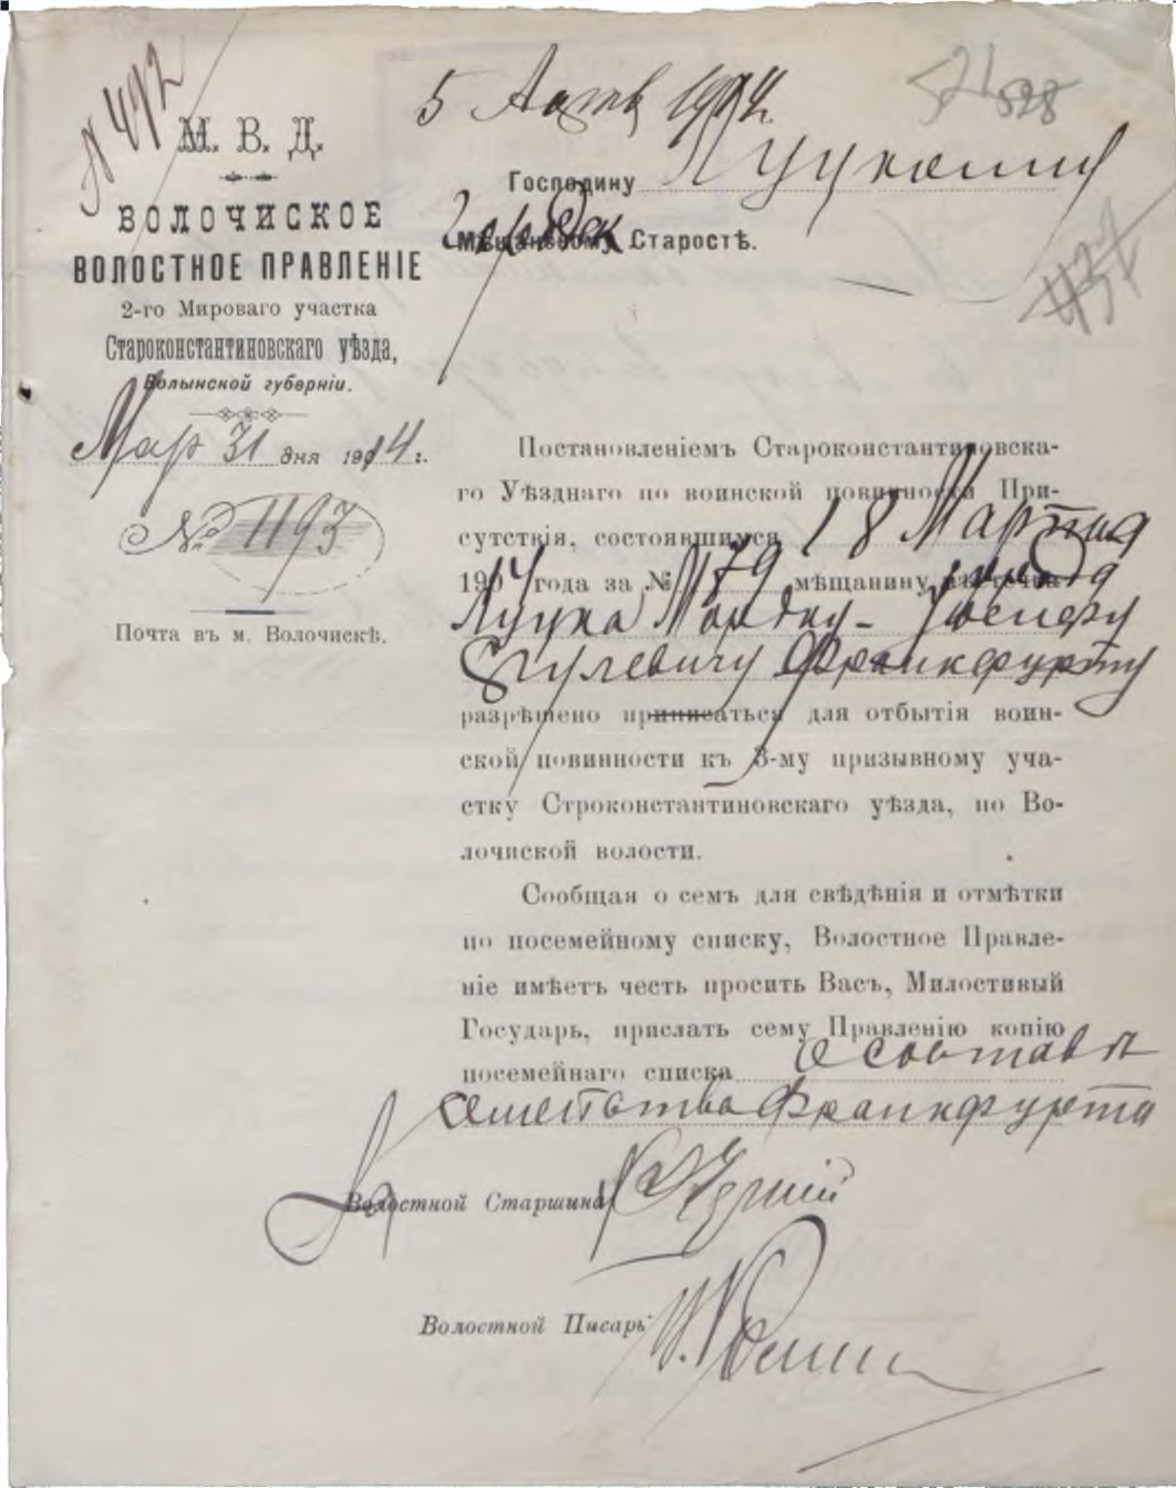 № 492
5 Апрѣ 1914.
528
М. В. Д.
ВОЛОЧИСКОЕ
ВОЛОСТНОЕ ПРАВЛЕНІЕ
2-го Мироваго участка
Староконстантиновскаго уѣзда,
Волынской губерніи.
Мар 31 дня 1914 г.
№ 1193
Почта въ м. Волочискѣ.
Господину Луцкому
Мѣщанскому Старостѣ.
Постановленіемъ Староконстантиновска-
го Уѣзднаго по воинской повинности При-
сутствія, состоявшимся 18 Марта
1914 года за № 179 мѣщанину города
Луцка Мордку-Іосифу
Сгулевичу Франкфурту
разрѣшено приписаться для отбытія воин-
ской повинности къ 3-му призывному уча-
стку Строконстантиновскаго уѣзда, по Во-
лочиской волости.
Сообщая о семъ для свѣдѣнія и отмѣтки
по посемейному списку, Волостное Правле-
ніе имѣетъ честь просить Васъ, Милостивый
Государь, прислать сему Правленію копію
посемейнаго списка о составѣ
семейства Франкфурта
Волостной Старшина
Волостной Писарь